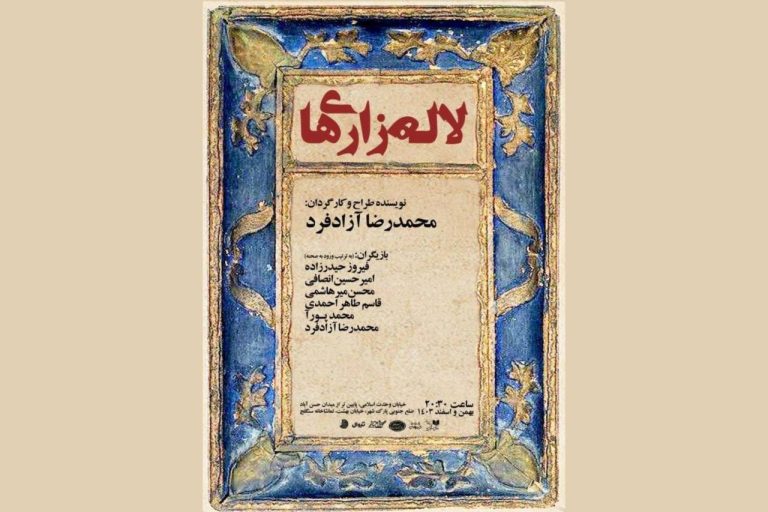 لاله‌زاری‌ها
نویسنده طراح و کارگردان:
محمدرضا آزادفرد
بازیگران: (به ترتیب ورود به صحنه)
فیروز حیدرزاده
امیرحسین انصافی
محسن میرهاشمی
قاسم طاهر احمدی
محمد پورآ
محمدرضا آزادفرد
ساعت ۲۰:۳۰ خیابان وحدت اسلامی، پایین تر از میدان حسن آباد
بهمن و اسفند ۱۴۰۳ ضلع جنوبی پارک شهر، خیابان بهشت، تماشاخانه سنگلج